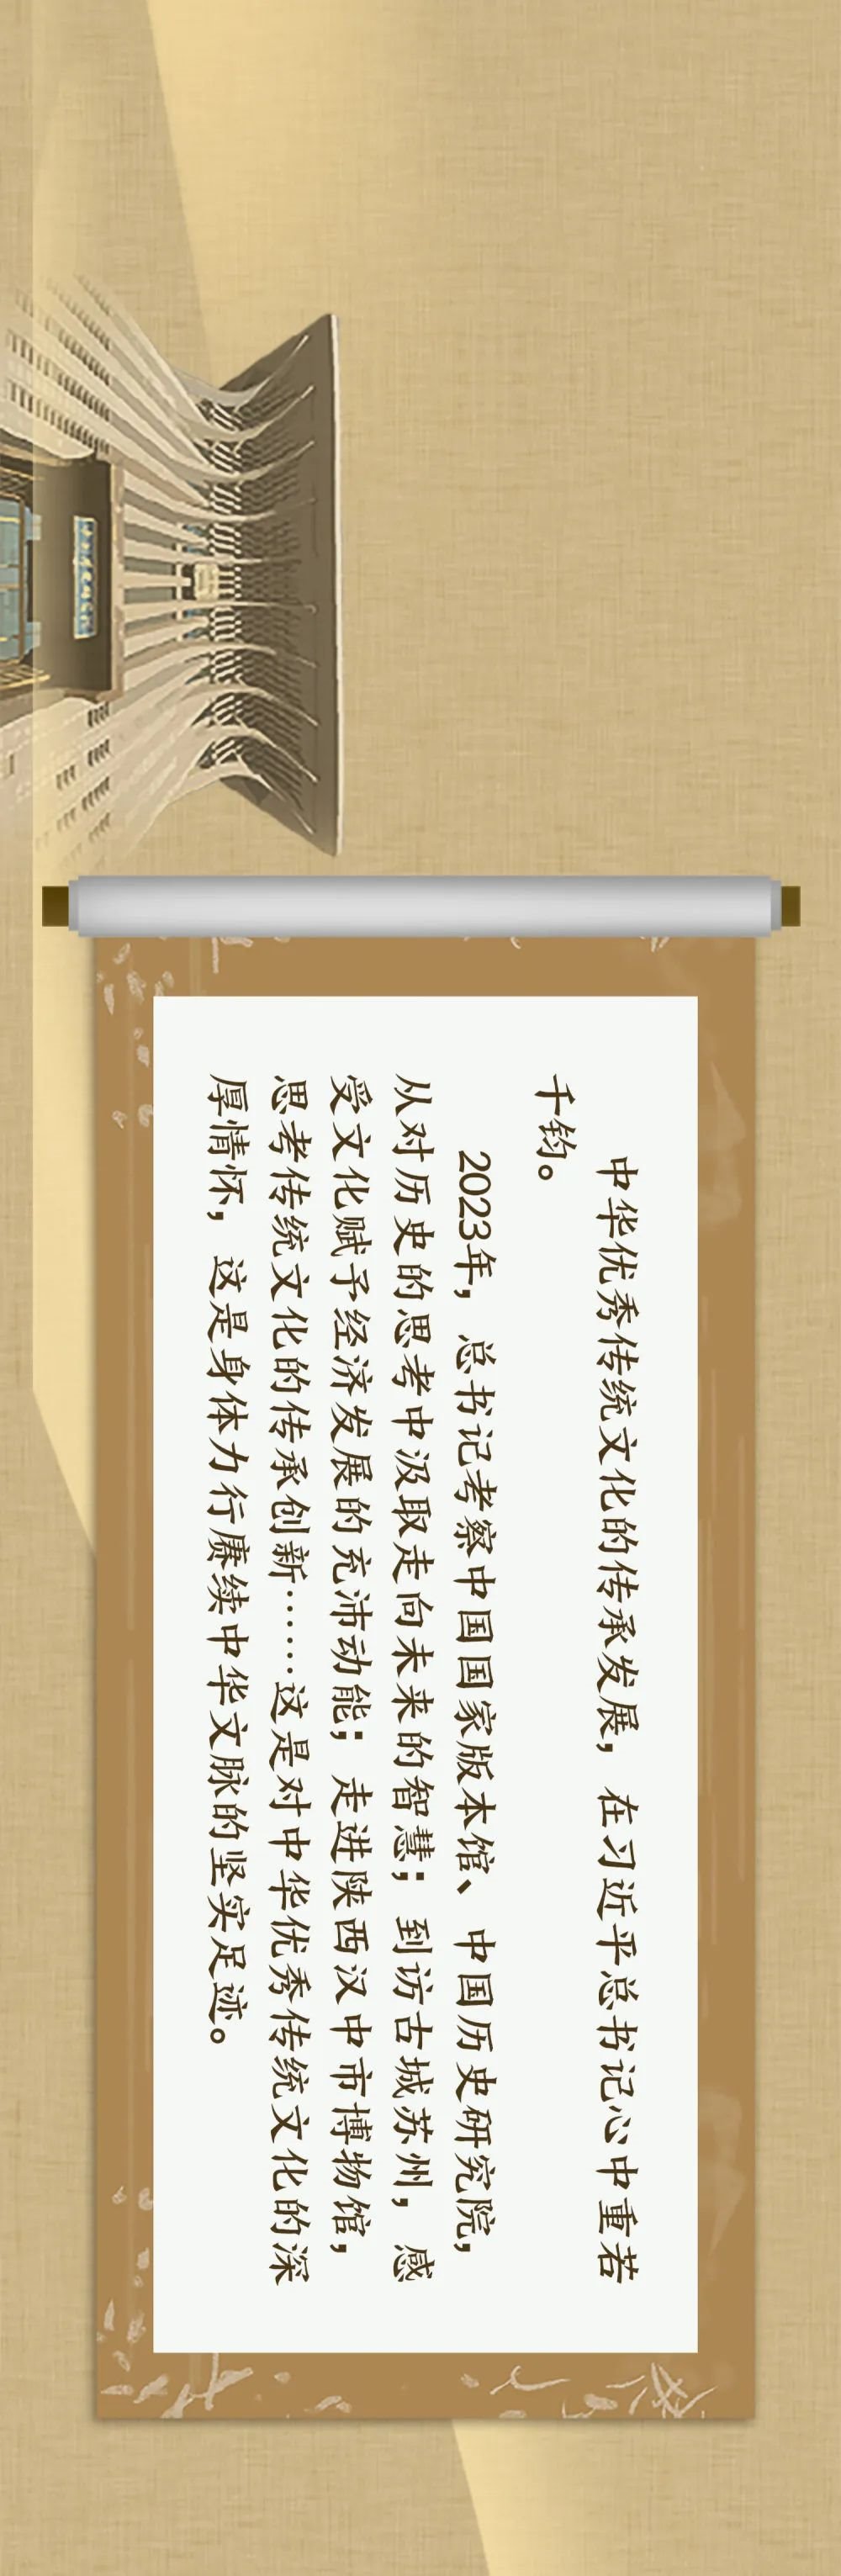 中华优秀传统文化的传承发展，在习近平总书记心中重若
千钧。
2023年，总书记考察中国国家版本馆、中国历史研究院，
从对历史的思考中汲取走向未来的智慧；到访古城苏州，感
受文化赋予经济发展的充沛动能；走进陕西汉中市博物馆，
思考传统文化的传承创新……这是对中华优秀传统文化的深
厚情怀，这是身体力行赓续中华文脉的坚实足迹。